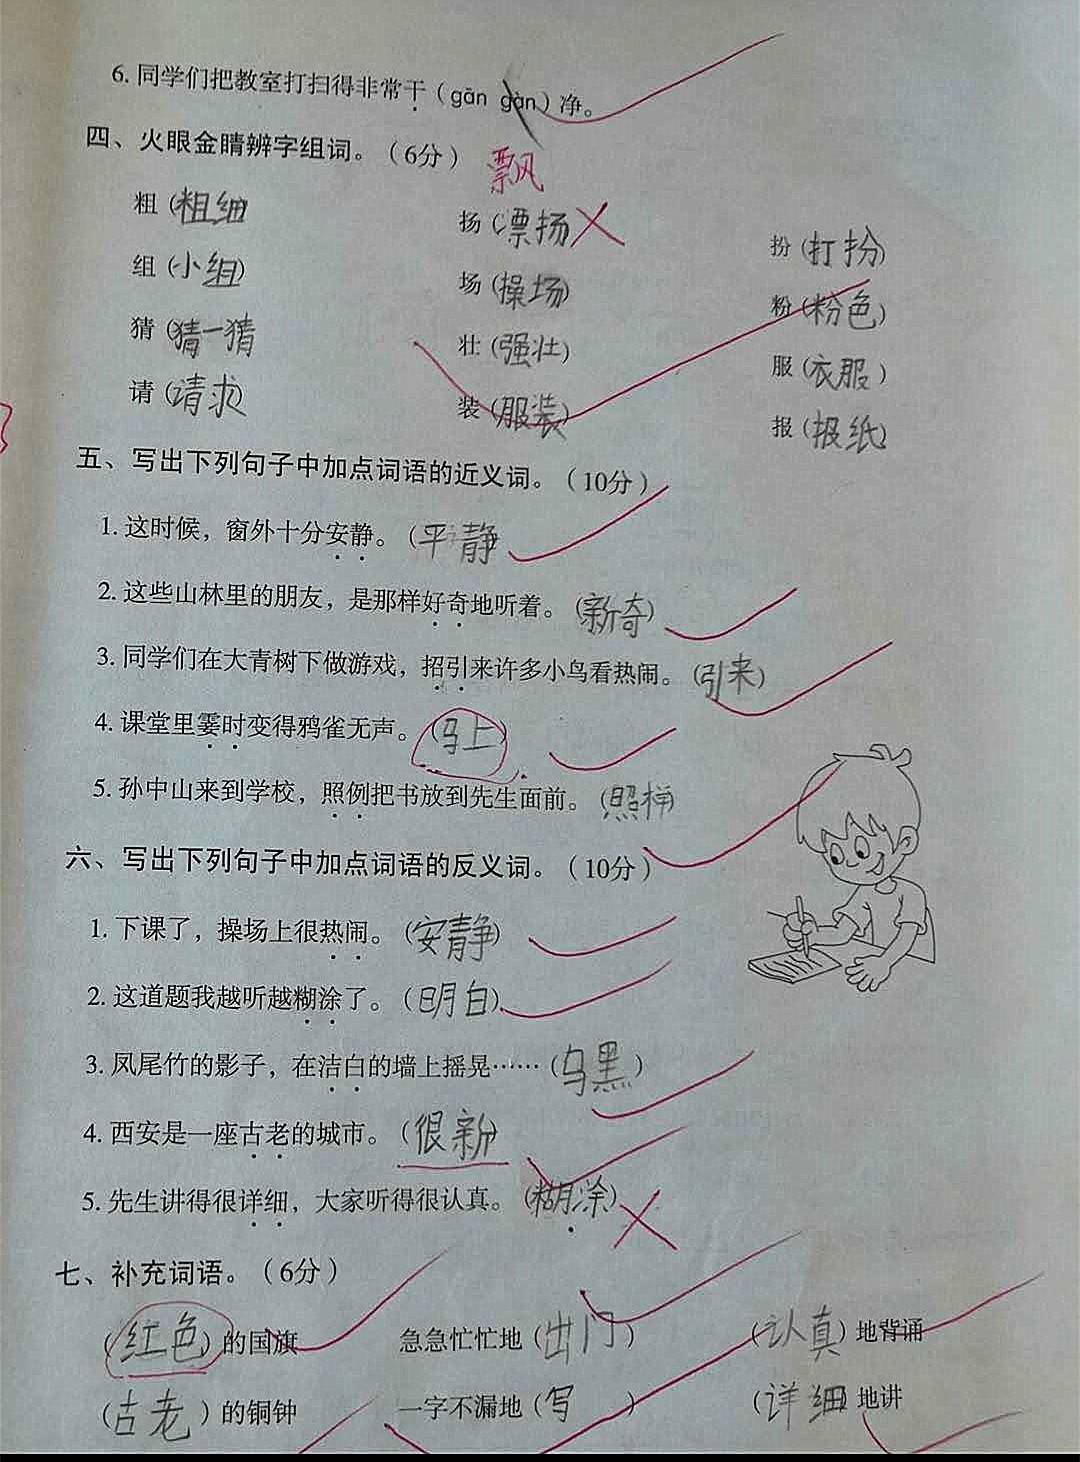 6. 同学们把教室打扫得非常干（gān gàn）净。
四、火眼金睛辨字组词。（6分）
飘
粗（粗细） 扬（漂扬） 扮（打扮）
组（小组） 场（操场） 粉（粉色）
猜（猜一猜） 壮（强壮） 服（衣服）
请（请求） 装（服装） 报（报纸）
五、写出下列句子中加点词语的近义词。（10分）
1. 这时候，窗外十分安静。（平静）
2. 这些山林里的朋友，是那样好奇地听着。（新奇）
3. 同学们在大青树下做游戏，招引来许多小鸟看热闹。（引来）
4. 课堂里霎时变得鸦雀无声。（马上）
5. 孙中山来到学校，照例把书放到先生面前。（照样）
六、写出下列句子中加点词语的反义词。（10分）
1. 下课了，操场上很热闹。（安静）
2. 这道题我越听越糊涂了。（明白）
3. 凤尾竹的影子，在洁白的墙上摇晃……（乌黑）
4. 西安是一座古老的城市。（很新）
5. 先生讲得很详细，大家听得很认真。（糊涂）
七、补充词语。（6分）
（红色）的国旗 急急忙忙地（出门） （认真）地背诵
（古老）的铜钟 一字不漏地（写） （详细）地讲